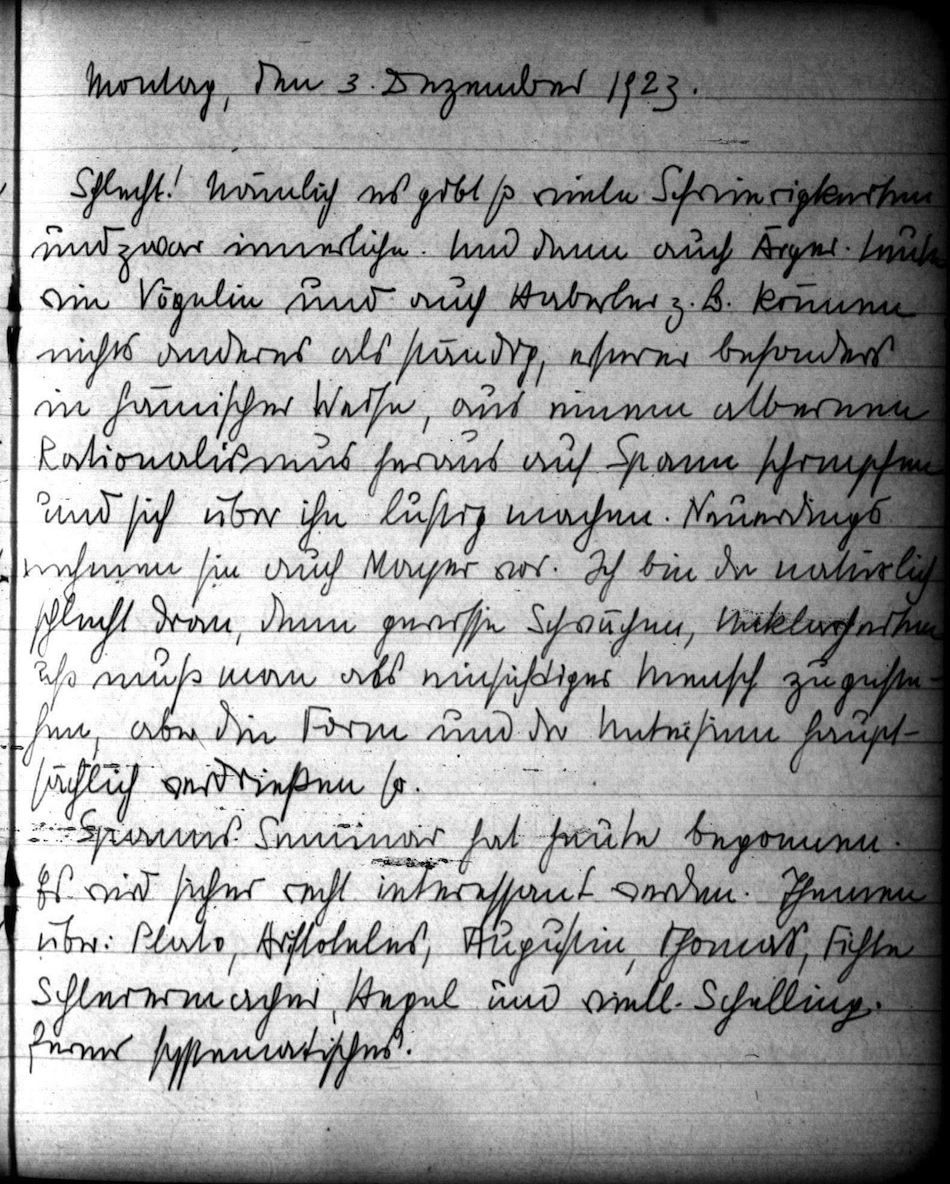 Montag, den 3. Dezember 1923.
Schlecht! Nämlich es gibt so viele Schwierigkeiten
und zwar innerliche. Und dann auch Ärger. Leute
wie Vögelin und auch Haberler z. B. können
nichts anderes als ständig, ersterer besonders
in hämischer Weise, aus einem albernen
Rationalismus heraus auf Spann schimpfen
und sich über ihn lustig machen. Neuerdings
nehmen sie auch Mayer vor. Ich bin da natürlich
schlecht dran, denn gewisse Schwächen, Unklarheiten
usw muß man als einsichtiger Mensch zugeste-
hen, aber die Form und der Unter haupt-
sächlich verdrießen so.
Spanns Seminar hat heute begonnen.
Es wird sicher recht interessant werden. Themen
über: Plato, Aristoteles, Augustin, Thomas, Fichte
Schleiermacher, Hegel und viell. Schelling.
ferner systematisches.